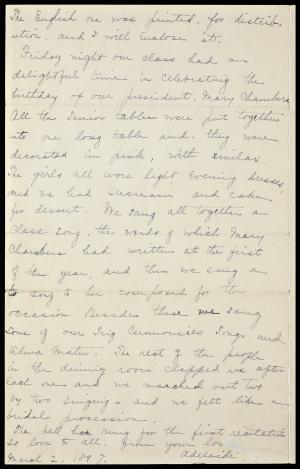 The English one was printed, for distrib-
ution, and I will enclose it.
Friday night our class had a
delightful time in celebrating the
birthday of our president, Mary Chambers.
All the Senior tables were put together
into one long table and they were
decorated in pink, with smilax.
The girls all wore light evening dresses,
and we had icecream and cake
for dessert. We sang all together a
Class song, the words of which Mary
Chambers had written at the first
of the year, and then we sang a
song to her composed for the
occasion. Besides these we sang
some of our Trig Ceremonies Songs and
Alma Mater. The rest of the people
in the dining room clapped us after
each one and we marched out two
by two singing - and we felt like a
bridal procession.
The bell has rung for the first recitation
so love to all. From your lov
Adelaide.
March 2. 1897.